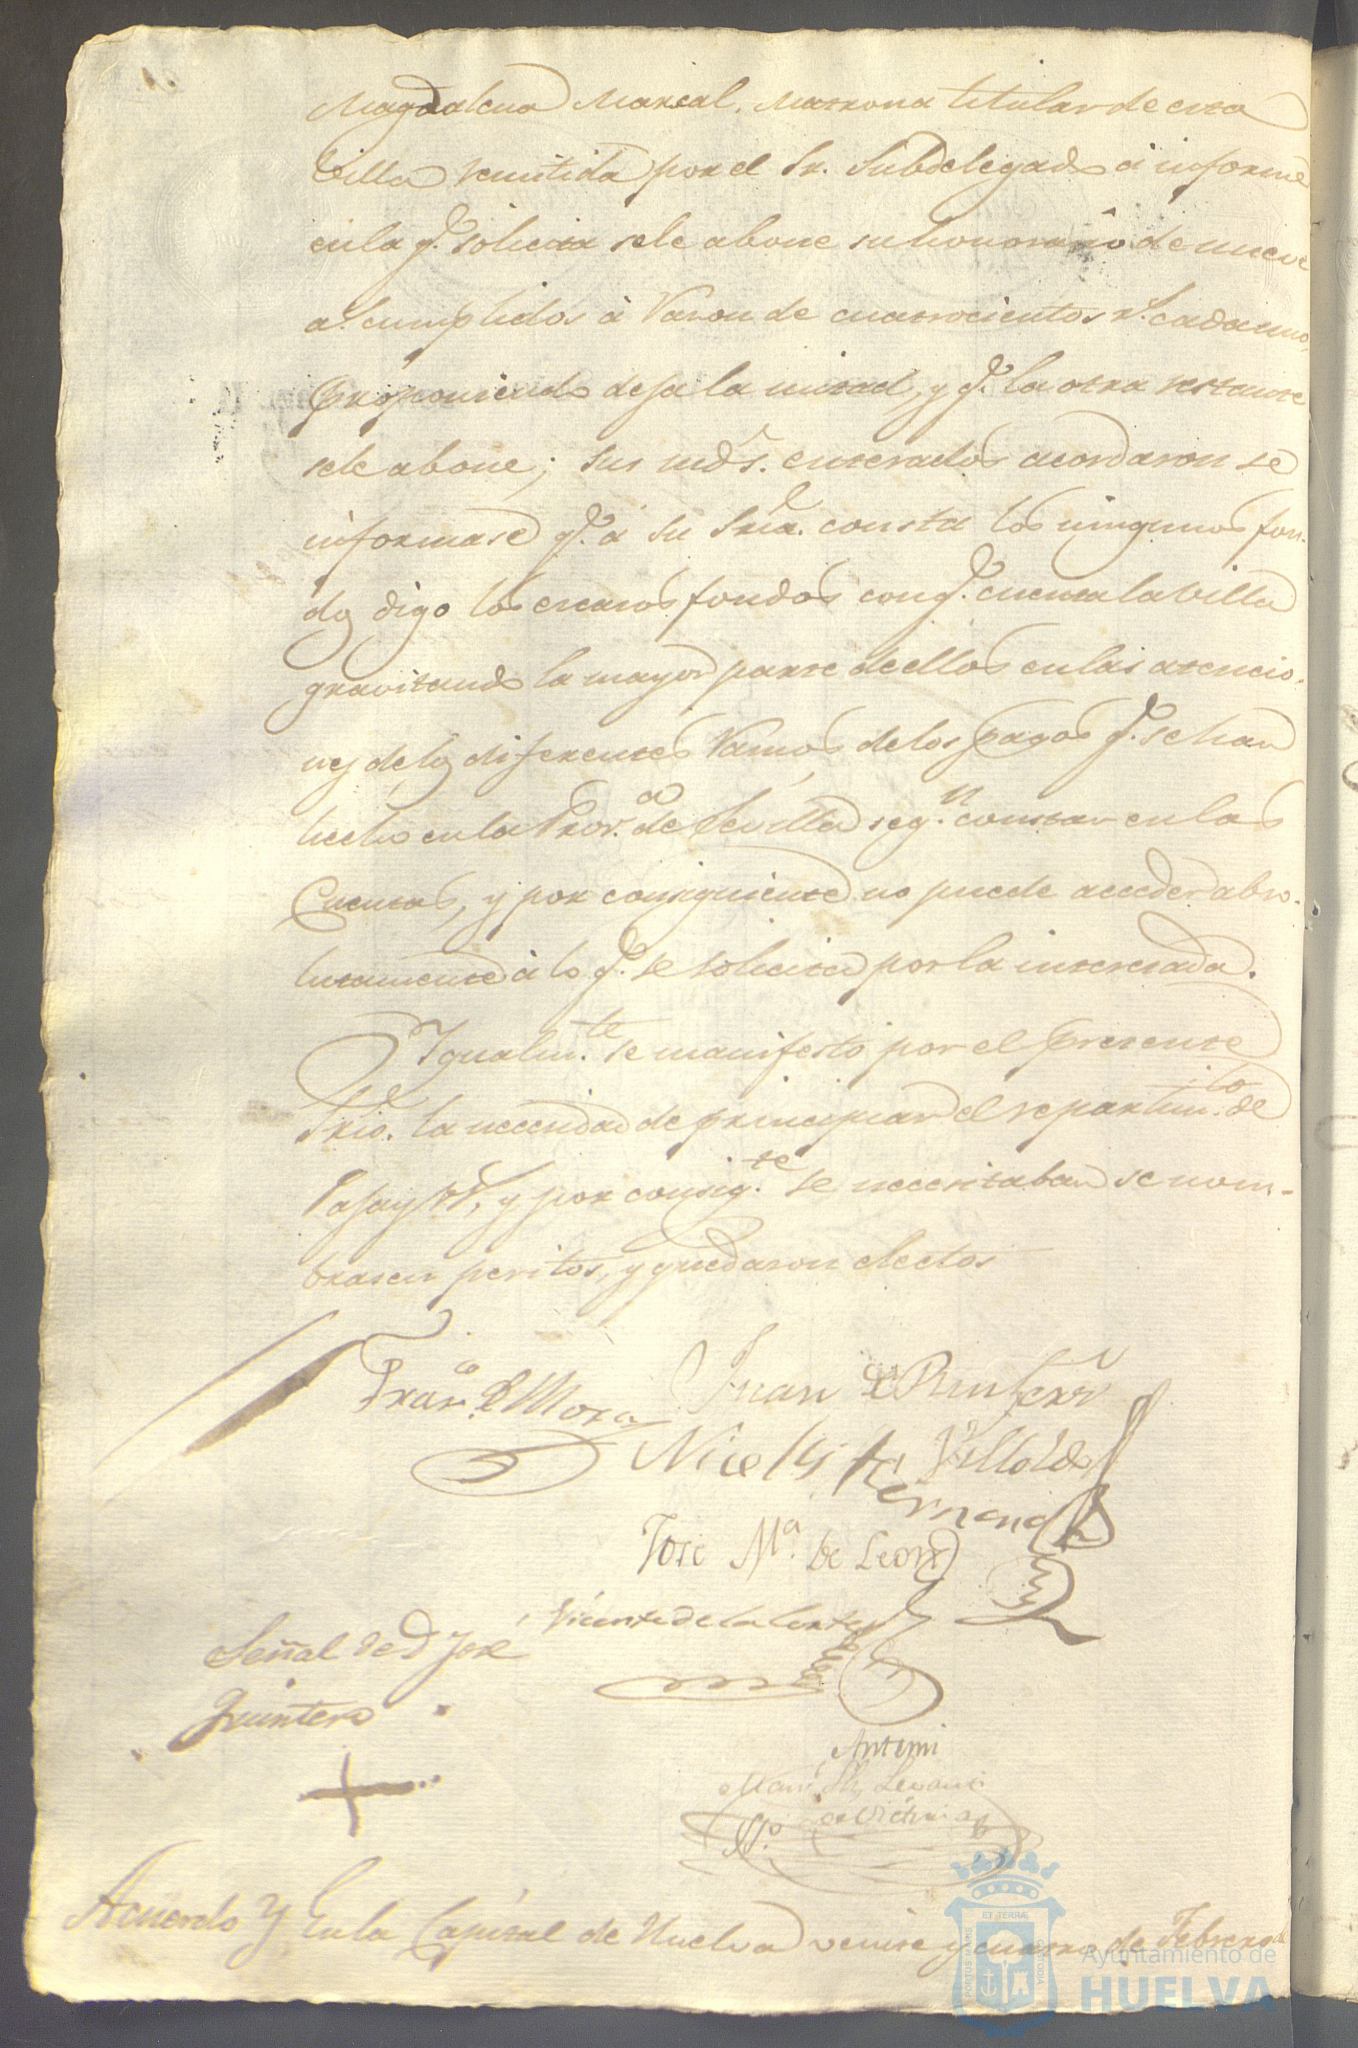 Magdalena Marcal. Matrona titular de esta
Villa remitida por el Sr. Subdelegado á informe
en la q.e solicita sele abone su honorario de nueve
a.s cumplidos á Razon de cuatrocientos r.s cada uno,
proponiendo deja la mitad, y q.e la otra restante
sele abone; sus mds. enterados acordaron se
informase q.e á su Sria. consta los ningunos fon-
dos digo los escasos fondos con q.e cuenta la Villa
gravitando la mayor parte de ellos en las atencio-
nes de los diferentes Ramos de los pagos q.e se han
hecho en la Prov.a de Sevilla seg.n constar en las
Cuentas, y por consiguiente no puede acceder abso-
lutamente á lo q.e se solicita por la interesada.
Igualm.te se manifestó por el presente
Srio. la necesidad de principiar el repartim.to de
Paja y, y por consig.te se necesitaban se nom-
brasen peritos, y quedaron electos
Fran.co de Mora Juan de
Nicolas Villolds
Fernandez
Jose M.a de Leon
Vicente de la Corte
Señal de D Jose
Quintero
Antemi
S.o
Acuerdo Y En la Capital de Huelva veinte y cuatro de Febrero de
ET TERRÆ
PORTUS MARIS
CUSTODIA
Ayuntamiento de
HUELVA